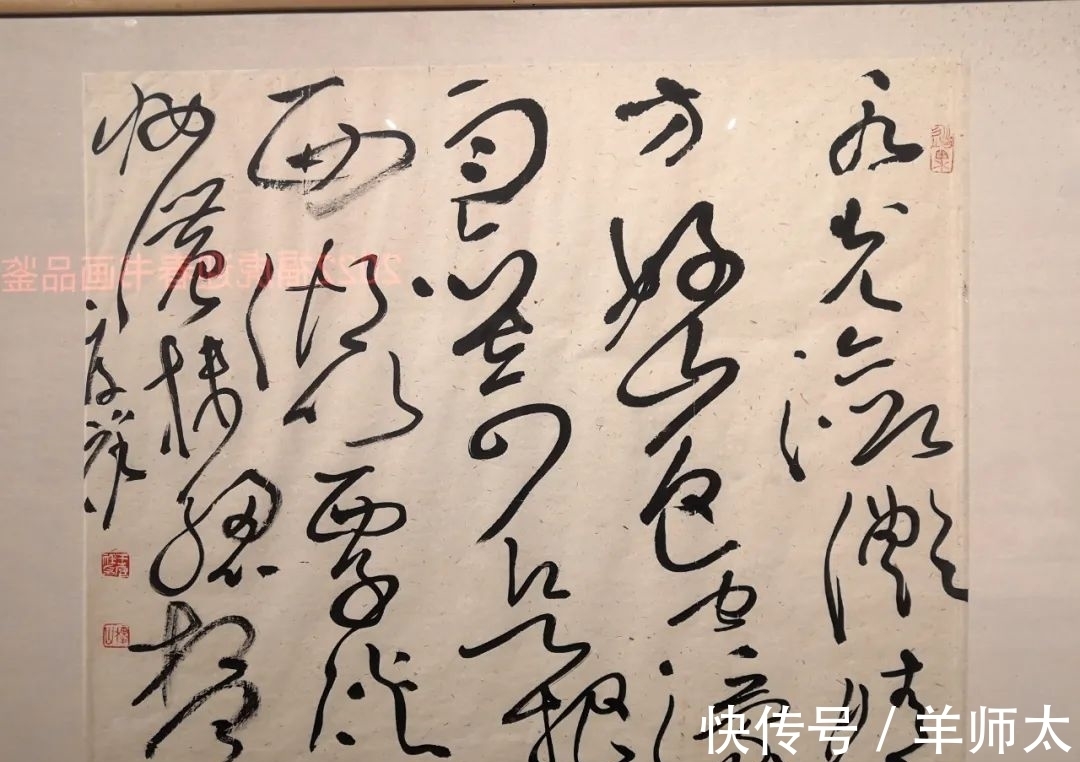 水光瀲灩晴
方好山色空濛
雨亦奇欲把
西湖比西子淡
妝濃抹總相宜
2022福虎迎春书画品鉴
快传号 / 羊师太